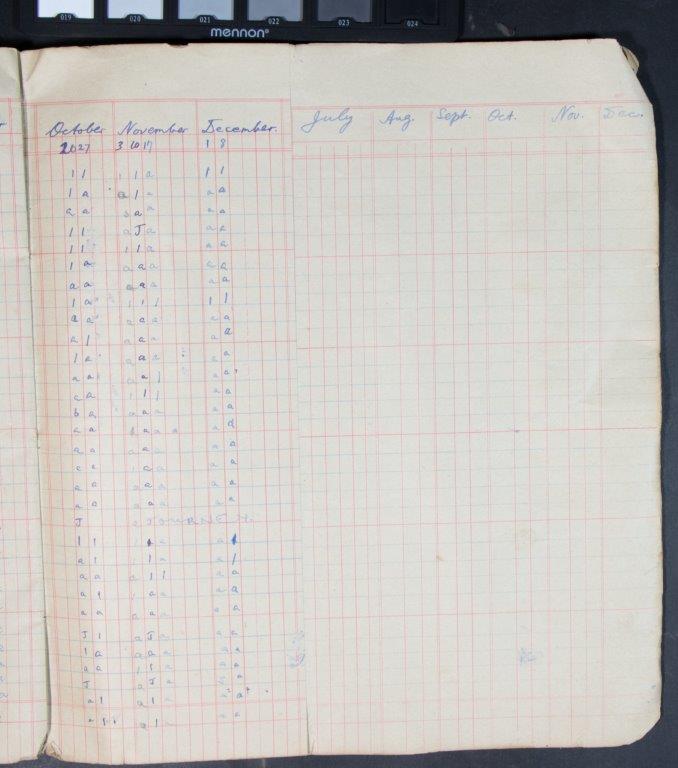 019 020 021 022 023 024
mennon®
October November December. July Aug. Sept. Oct. Nov. Dec.
20 27 3 10 17 1 8
1 1 1 1 a 1 1
1 a a 1 a a a
a a a a a a
1 1 a J a a a
1 1 1 1 a a a
1 a a a a a a
a a a a a a a
1 a 1 1 1 1 1
a a a a a a a
a 1 a a a a a
1 a a a a a a
a a a a 1 a a
a a 1 1 1 a a
b a a a a a a
a a a a a a d
a a a a a a a
a a 1 a a a a
a a a a a a a
a a a a a a a
J JOURNEY.
1 1 1 1 a a 1
a 1 1 1 a a 1
a a a 1 1 a a
a 1 1 a a a a
a a a a a a a
J 1 a J a a a
1 a a a a a a
a a 1 1 a a a
J a J a a
a 1 a 1 a a
a 1 1 a 1 a a a